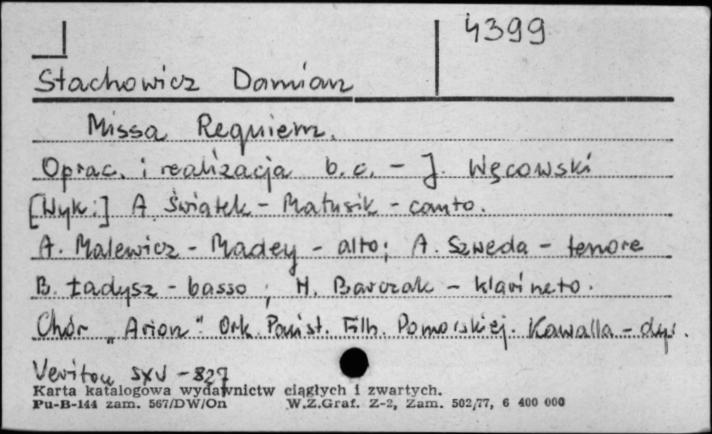 4399
Stachowicz Damian
Missa Requiem.
Oprac. i realizacja b.c. - J. Węcowski
[Wyk:] A. Świątek - Matusik - canto.
A. Malewicz - Madey - alto; A. Szweda - tenore
B. Ładysz - basso ; H. Barczak - klarineto.
Chór "Arion". Ork. Państ. Filh. Pomorskiej. Kawalla - dyr.
Veriton SXV - 827
Karta katalogowa wydawnictw ciągłych i zwartych.
Pu-B-144 zam. 567/DW/On W.Z.Graf. Z-2, Zam. 502/77, 6 400 000